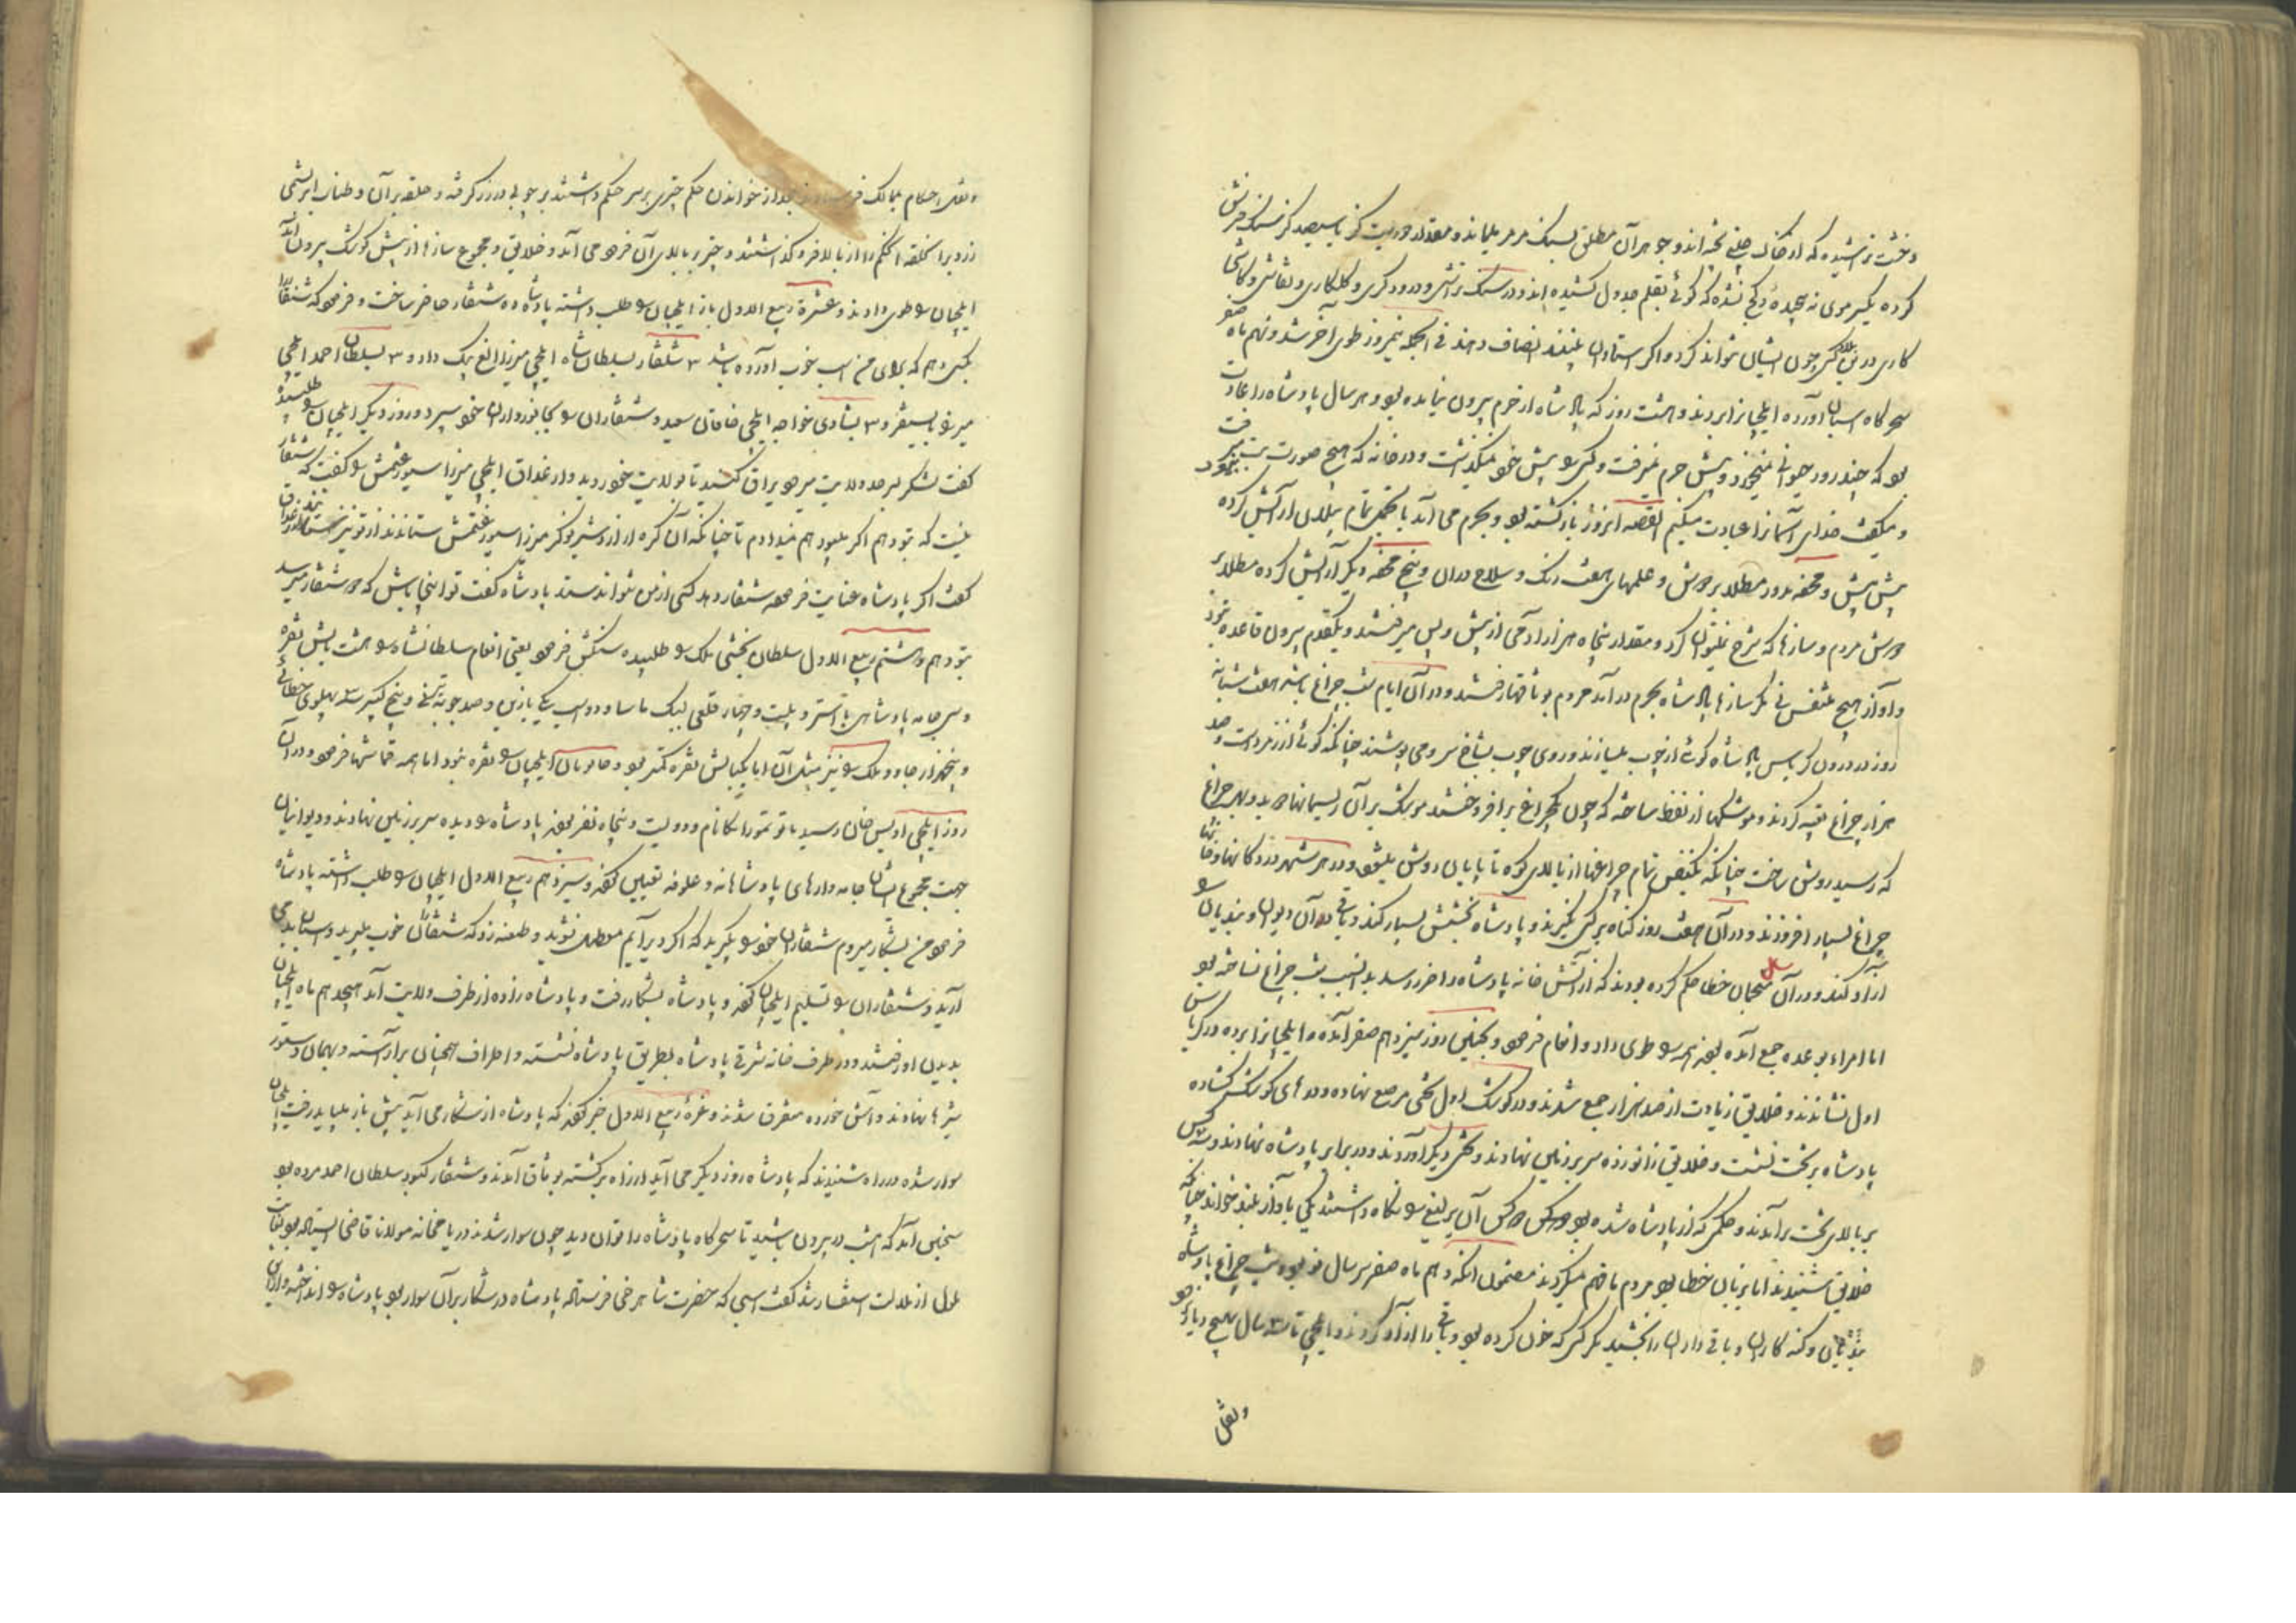 و خشت تراشیده که از خاک چینی پخته اند و جوهر آن مطلق بسنگ مرمر میماند و مقدار دویست گز یا سیصد گز سنگ فرش
کرده یکسر موی نه پیچیده و کج نشده که گوئی بقلم جدول کشیده اند و در سنگ تراشی و درودگری و گلکاری و نقاشی و کاشی
کاری درین بلاد کس چون ایشان نتواند کرد و اگر استادان ببینند انصاف دهند فی الجمله نیمروز طوی آخر شد و نهم ماه صفر
سحرگاه اسپان آورده ایلچیانرا بردند و هشت روز که پادشاه از حرم بیرون نیامده بود و هر سال پادشاه را عادت
بود که چند روز حیوانی نمیخورد و پیش حرم نمیرفت و کس را پیش خود نمیگذاشت و در خانه که هیچ صورت بت نبود میرفت
و میگفت خدای آسمانرا عبادت میکنم القصه آنروز بازگشته بود و بحرم می آمد با تجمل تمام پیلان آرایش کرده
پیش پیش و محفه مدور مطلا بر دوش و علمهای هفت رنگ و سلاح داران و پنج محفه دیگر آرایش کرده مطلا بر
دوش مردم و سازها که شرح نتوان کرد و مقدار پنجاه هزار آدمی از پیش و پس میرفتند و یکقدم بیرون قاعده نبود
و آواز هیچ متنفس نی مگر سازها پادشاه بحرم درآمد مردم بوثاقها رفتند و در آن ایام شب چراغ باشد هفت شبانه
روز در درون کریاس پادشاه کوهی از چوب میسازند و روی چوب بشاخ سرو می پوشند چنانکه گوئی از زمرد است و صد
هزار چراغ تعبیه کردند و موشکها از نفط ساخته که چون یکچراغ برافروختند موشک بر آن ریسمانها دوید و بهر چراغ
که رسید روشن ساخت چنانکه بیکنفس تمام چراغها از بالای کوه تا پایان روشن میشود و در هر شهر در دکانها و خانها
چراغ بسیار افروزند و در آن هفت روز گناه بر کس نگیرند و پادشاه بخشش بسیار کند و باقی داران دیوان و بندیان را
آزاد کنند و در آن سال منجمان خطا حکم کرده بودند که از آتش خانه پادشاه را ضرر رسد بدان سبب شب چراغ نساخته بود
اما امرا بوعده جمع آمده بودند همه را طوی داد و انعام فرمود و همچنین روز سیزدهم صفر آمده و ایلچیانرا برده در کریاس
اول نشاندند و خلایق زیادت از صد هزار جمع شدند و در کوشک اول تختی مرصع نهاده و درهای کوشک گشاده
پادشاه بر تخت نشست و خلایق زانو زده سر بر زمین نهادند و تختی دیگر آوردند و در برابر پادشاه نهادند و سه کس
بر بالای تخت برآمدند و حکمی که از پادشاه شده بود دو کس آن یرلیغ را نگاه داشتند یکی بآواز بلند خواند چنانکه
خلایق شنیدند اما بزبان خطا بود مردم ما فهم نمیکردند مضمون آنکه دهم ماه صفر سر سال نو بود و شب چراغ پادشاه
بندیان و گنه کاران و باقی داران را بخشید مگر کس که خون کرده بود و باقی را آزاد کردند و ایلچی تا سه سال بهیچ دیار نرود
و نقل
و نقل احکام بممالک فرستادند بعد از خواندن حکم چتری بر سر حکم داشتند بر چوبی در زر گرفته و حلقه بر آن و طناب ابریشمی
زرد بر آن حلقه احکام را از بالا فرو گذاشتند و چتر بر بالای آن فرود می آمد و خلایق و مجموع سازها از پیش کوشک بیرون آمد
ایلچیان را طوی دادند و غره ربیع الاول باز ایلچیان را طلب داشته پادشاه ده شنقار حاضر ساخت و فرمود که شنقار
بکسی دهم که برای من اسپ خوب آورده باشد ۳ شنقار بسلطان شاه ایلچی میرزا الغ بیک داد و ۳ بسلطان احمد ایلچی
میرزا بایسنقر و ۳ بشادی خواجه ایلچی خاقان سعید و شنقاران را بجانورداران خود سپرد و روز دیگر ایلچیان را طلبیده
گفت لشکر بسرحد ولایت میرود یراق کنید تا بولایت خود روید و ارغداق ایلچی میرزا سیورغتمش را گفت که شنقار
نیست که بتو دهم اگر میبود هم نمیدادم تا چنانکه آن کره از اردشیر نوکر میرزا سیورغتمش ستاندند از تو نیز نستانند ارغداق
گفت اگر پادشاه عنایت فرموده شنقار دهد کسی از من نتواند ستد پادشاه گفت تو اینجا باش که دو شنقار میرسد
بتو دهم و هشتم ربیع الاول سلطان بخشی ملک را طلبیده سنکش فرمود یعنی انعام سلطانشاه را هشت بالش نقره
و سی جامه پادشاهی با آستر و بیست و چهار قلعی لیک تاسا و دو اسپ یکی بازین و صد چوبه تیر نی و پنج کیبر سه پهلوی خطائی
و پنجهزار چاو و ملک را نیز مثل آن اما یکبالش نقره کمتر بود و خاتونان ایلچیان را نقره نبود اما همه قماشها فرمود و در آن
روز ایلچی اویس خان رسید باتو تیمور انکا نام و دویست و پنجاه نفر بودند پادشاه را دیده سر بر زمین نهادند و دیوانیان
جهت مجموع ایشان جامه وارهای پادشاهانه و علوفه تعیین کردند و سیزدهم ربیع الاول ایلچیان را طلب داشته پادشاه
فرمود من بشکار میروم شنقاران خود را بگیرید که اگر دیر آیم معطل نشوید و طعنه زد که شنقاران خوب میبرید و اسپان بد می
آرید و شنقاران را تسلیم ایلچیان کردند و پادشاه بشکار رفت و پادشاه زاده از طرف ولایت آمد هیجدهم ماه ایلچیان
بدیدن او رفتند و در طرف خانه شرقی پادشاه بطریق پادشاه نشسته و اطراف همچنان برآراسته و بهمان دستور
شیرها نهادند و آش خورده متفرق شدند و غره ربیع الاول خبر کردند که پادشاه از شکار می آید پیش باز میباید رفت ایلچیان
سوار شده در راه شنیدند که پادشاه روز دیگر می آید از راه برگشته بوثاق آمدند و شنقار کبود سلطان احمد مرده بود
سجنین آمد که امشب در بیرون باشید تا سحرگاه پادشاه را توان دید چون سوار شدند در یامخانه مولانا قاضی ایستاده بود بغایت
ملول از ملالت استفسار شد گفت اسپی که حضرت شاهرخی فرستاده پادشاه در شکار بر آن سوار بود پادشاه را انداخته و از این